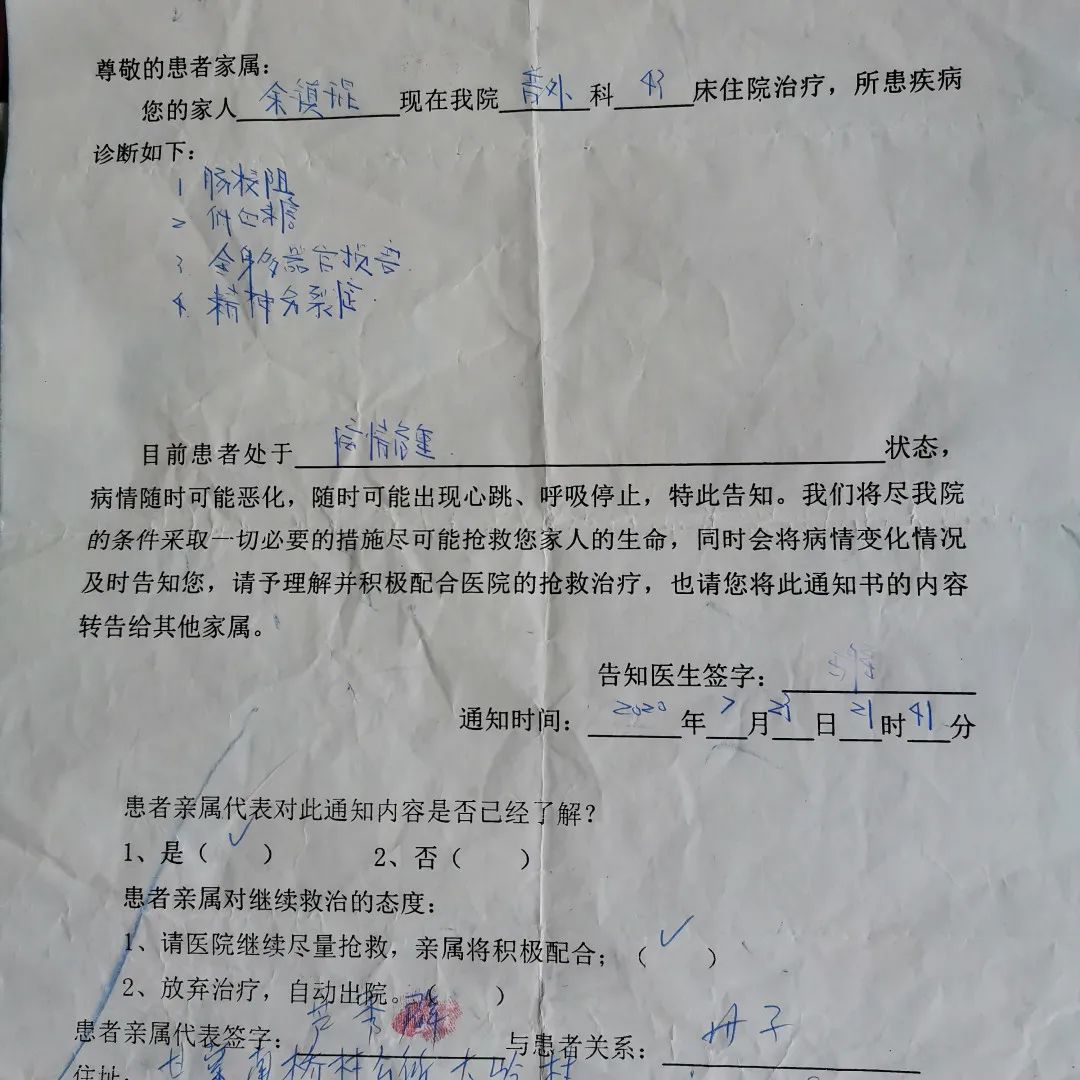 尊敬的患者家属：
您的家人余镇焜现在我院普外科43床住院治疗，所患疾病
诊断如下：
1 肠梗阻
2 低血糖
3 全身多器官损害
4 精神分裂症
目前患者处于病情危重状态，
病情随时可能恶化，随时可能出现心跳、呼吸停止，特此告知。我们将尽我院
的条件采取一切必要的措施尽可能抢救您家人的生命，同时会将病情变化情况
及时告知您，请予理解并积极配合医院的抢救治疗，也请您将此通知书的内容
转告给其他家属。
告知医生签字：
通知时间：2020年7月23日21时41分
患者亲属代表对此通知内容是否已经了解？
1、是（✓） 2、否（ ）
患者亲属对继续救治的态度：
1、请医院继续尽量抢救，亲属将积极配合；（✓）
2、放弃治疗，自动出院。（ ）
患者亲属代表签字： 与患者关系：母子
住址：